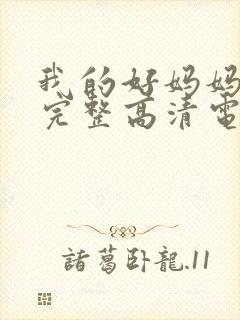 我的好妈妈
完整高清電
諸葛卧龍.11